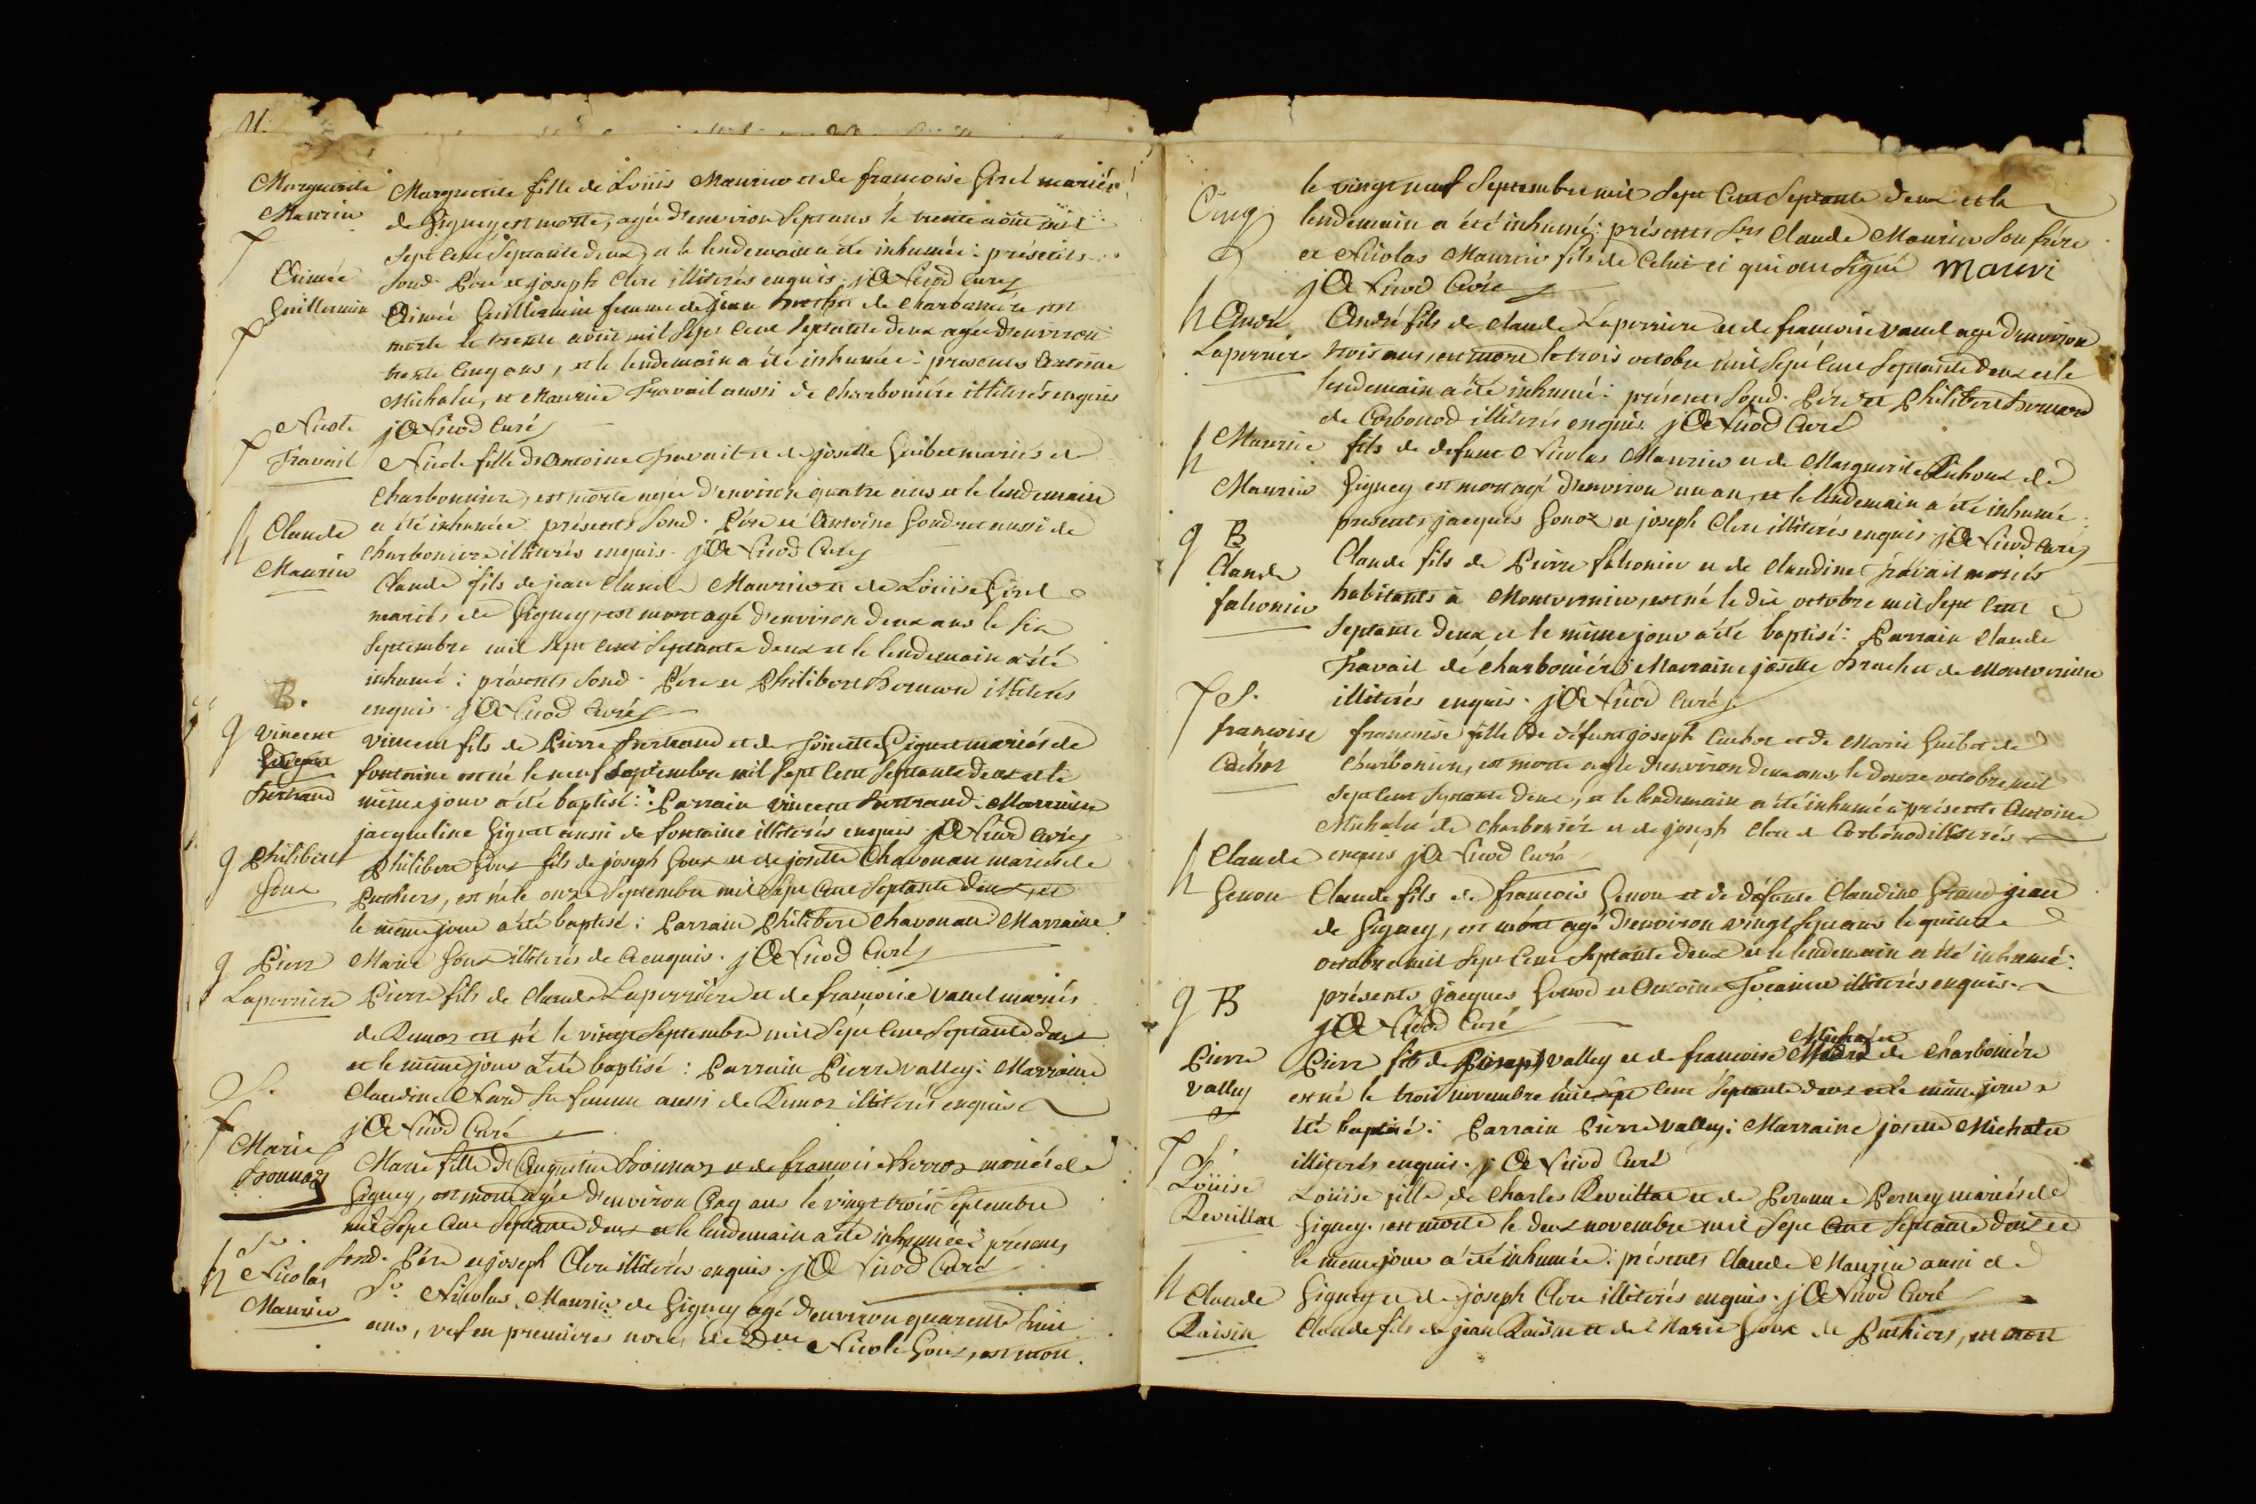 Marguerite
Maurin
Marguerite fille de Loüis Maurin et de francoise Girel mariés
de Gigney est morte, agée d'environ Sept ans le trente aout mil
Sept cent Septante deux, et le lendemain a été inhumée : présents
Sond. Pére et joseph Clerc illiterés enquis. Nicod Curé
Aimée
Guillermin
Aimée Guillermin femme de jean de Charboniére est
morte le trente aout mil Sept cent Septante deux agée d'environ
trente Cinq ans, et le lendemain a été inhumée : presents Antoine
Michalet, et Maurice Travail aussi de Charboniére illiterés enquis
Nicod Curé
Nicole
Travail
Nicole fille d'Antoine Travail et de josette Guibet mariés de
Charboniere, est morte agée d'environ quatre ans et le lendemain
a été inhumée : présents Sond. Pére et Antoine aussi de
Charboniere illiterés enquis. Nicod Curé
Claude
Maurin
Claude fils de jean Claude Maurin et de Loüise Girel
mariés de Gigney, est mort agé d'environ deux ans le Six
Septembre mil Sept cent Septante deux et le lendemain a été
inhumé : présents Sond. Pére et Philibert illiterés
enquis. Nicod Curé
B.
vincent
Bertrand
vincent fils de Pierre Bertrand et de Gignet mariés de
fontaine est né le neuf Septembre mil Sept cent Septante deux et le
même jour a été baptisé : Parrain vincent Bertrand : Marraine
jacqueline Gignet aussi de fontaine illiterés enquis. Nicod Curé
Philibert
Goux
Philibert Goux fils de joseph Goux et de josette Chavonau mariés de
Puthiers, est né le onze Septembre mil Sept cent Septante deux, et
le même jour a été baptisé : Parrain Philibert Chavonau : Marraine
Marie Goux illiterés de ce enquis. Nicod Curé
Pierre
Laperriere
Pierre fils de Claude Laperriére et de francoise vauel mariés
de Rumoz est né le vingt Septembre mil Sept cent Septante deux
et le même jour a été baptisé : Parrain Pierre valley : Marraine
Claudine Nard Sa femme aussi de Rumoz illiterés enquis
Nicod Curé
S.
Marie
Marie fille d'Augustin et de francoise mariés de
Gigney, est morte agée d'environ Cinq ans le vingt trois Septembre
mil Sept cent Septante deux et le lendemain a été inhumée : presents
Sond. Pére et joseph Clerc illiterés enquis. Nicod Curé
Sr.
Nicolas
Maurin
Sr. Nicolas Maurin de Gigney agé d'environ quarente huit
ans, vef en premiéres noces de Dlle Nicole Goux, est mort
Cinq
le vingt neuf Septembre mil Sept cent Septante deux et le
lendemain a été inhumé : présents Srs Claude Maurin Son frére
et Nicolas Maurin fils de Celui ci qui ont Signé Mauri
Nicod Curé
André
Laperrier
André fils de Claude Laperriere et de francoise vauel agé d'environ
trois ans, est mort le trois octobre mil Sept cent Septante deux et le
lendemain a été inhumé : présents Sond. Pére et Philibert
de Corbonod illiterés enquis. Nicod Curé
Maurice
Maurin
fils de defunt Nicolas Maurin et de Marguerite de
Gigney est mort agé d'environ un an, et le lendemain a été inhumé :
presents jacques Gonod et joseph Clerc illiterés enquis. Nicod Curé
B
Claude
falconier
Claude fils de Pierre falconier et de Claudine Travail mariés
habitants a, est né le dix octobre mil Sept cent
Septante deux, et le même jour a été baptisé : Parrain Claude
Travail de Charboniére : Marraine josette Bruchet de
illiterés enquis. Nicod Curé
S.
francoise
Cuchet
francoise fille de défunt joseph Cuchet et de Marie Guibet de
Charboniere, est morte agée d'environ deux ans, le douze octobre mil
Sept cent Septante deux, et le lendemain a été inhumée présents Antoine
Michalet de Charboniére et de joseph Clerc de Corbonod illiterés
enquis Nicod Curé
Claude
Genon
Claude fils de francois Genon et de défunte Claudine Grand jean
de Gigney, est mort agé d'environ vingt Sept ans le quinze
octobre mil Sept cent Septante deux et le lendemain a été inhumé :
présents jacques Gonod et Antoine illiterés enquis.
Nicod Curé
B
Pierre
valley
Pierre fils de joseph valley et de francoise Michalet de Charboniére
est né le trois novembre mil Sept cent Septante deux et le même jour a
été baptisé : Parrain Pierre valley : Marraine josette Michalet
illiterés enquis. Nicod Curé
S.
Loüise
Reveillat
Loüise fille de Charles Reveillat et de Peronne Perney mariés de
Gigney, est morte le deux novembre mil Sept cent Septante deux et
le même jour a été inhumée : présents Claude Maurin aussi de
Gigney et de joseph Clerc illiterés enquis. Nicod Curé
Claude
Raisin
Claude fils de jean Raisin et de Marie Goux de Puthiers, est mort